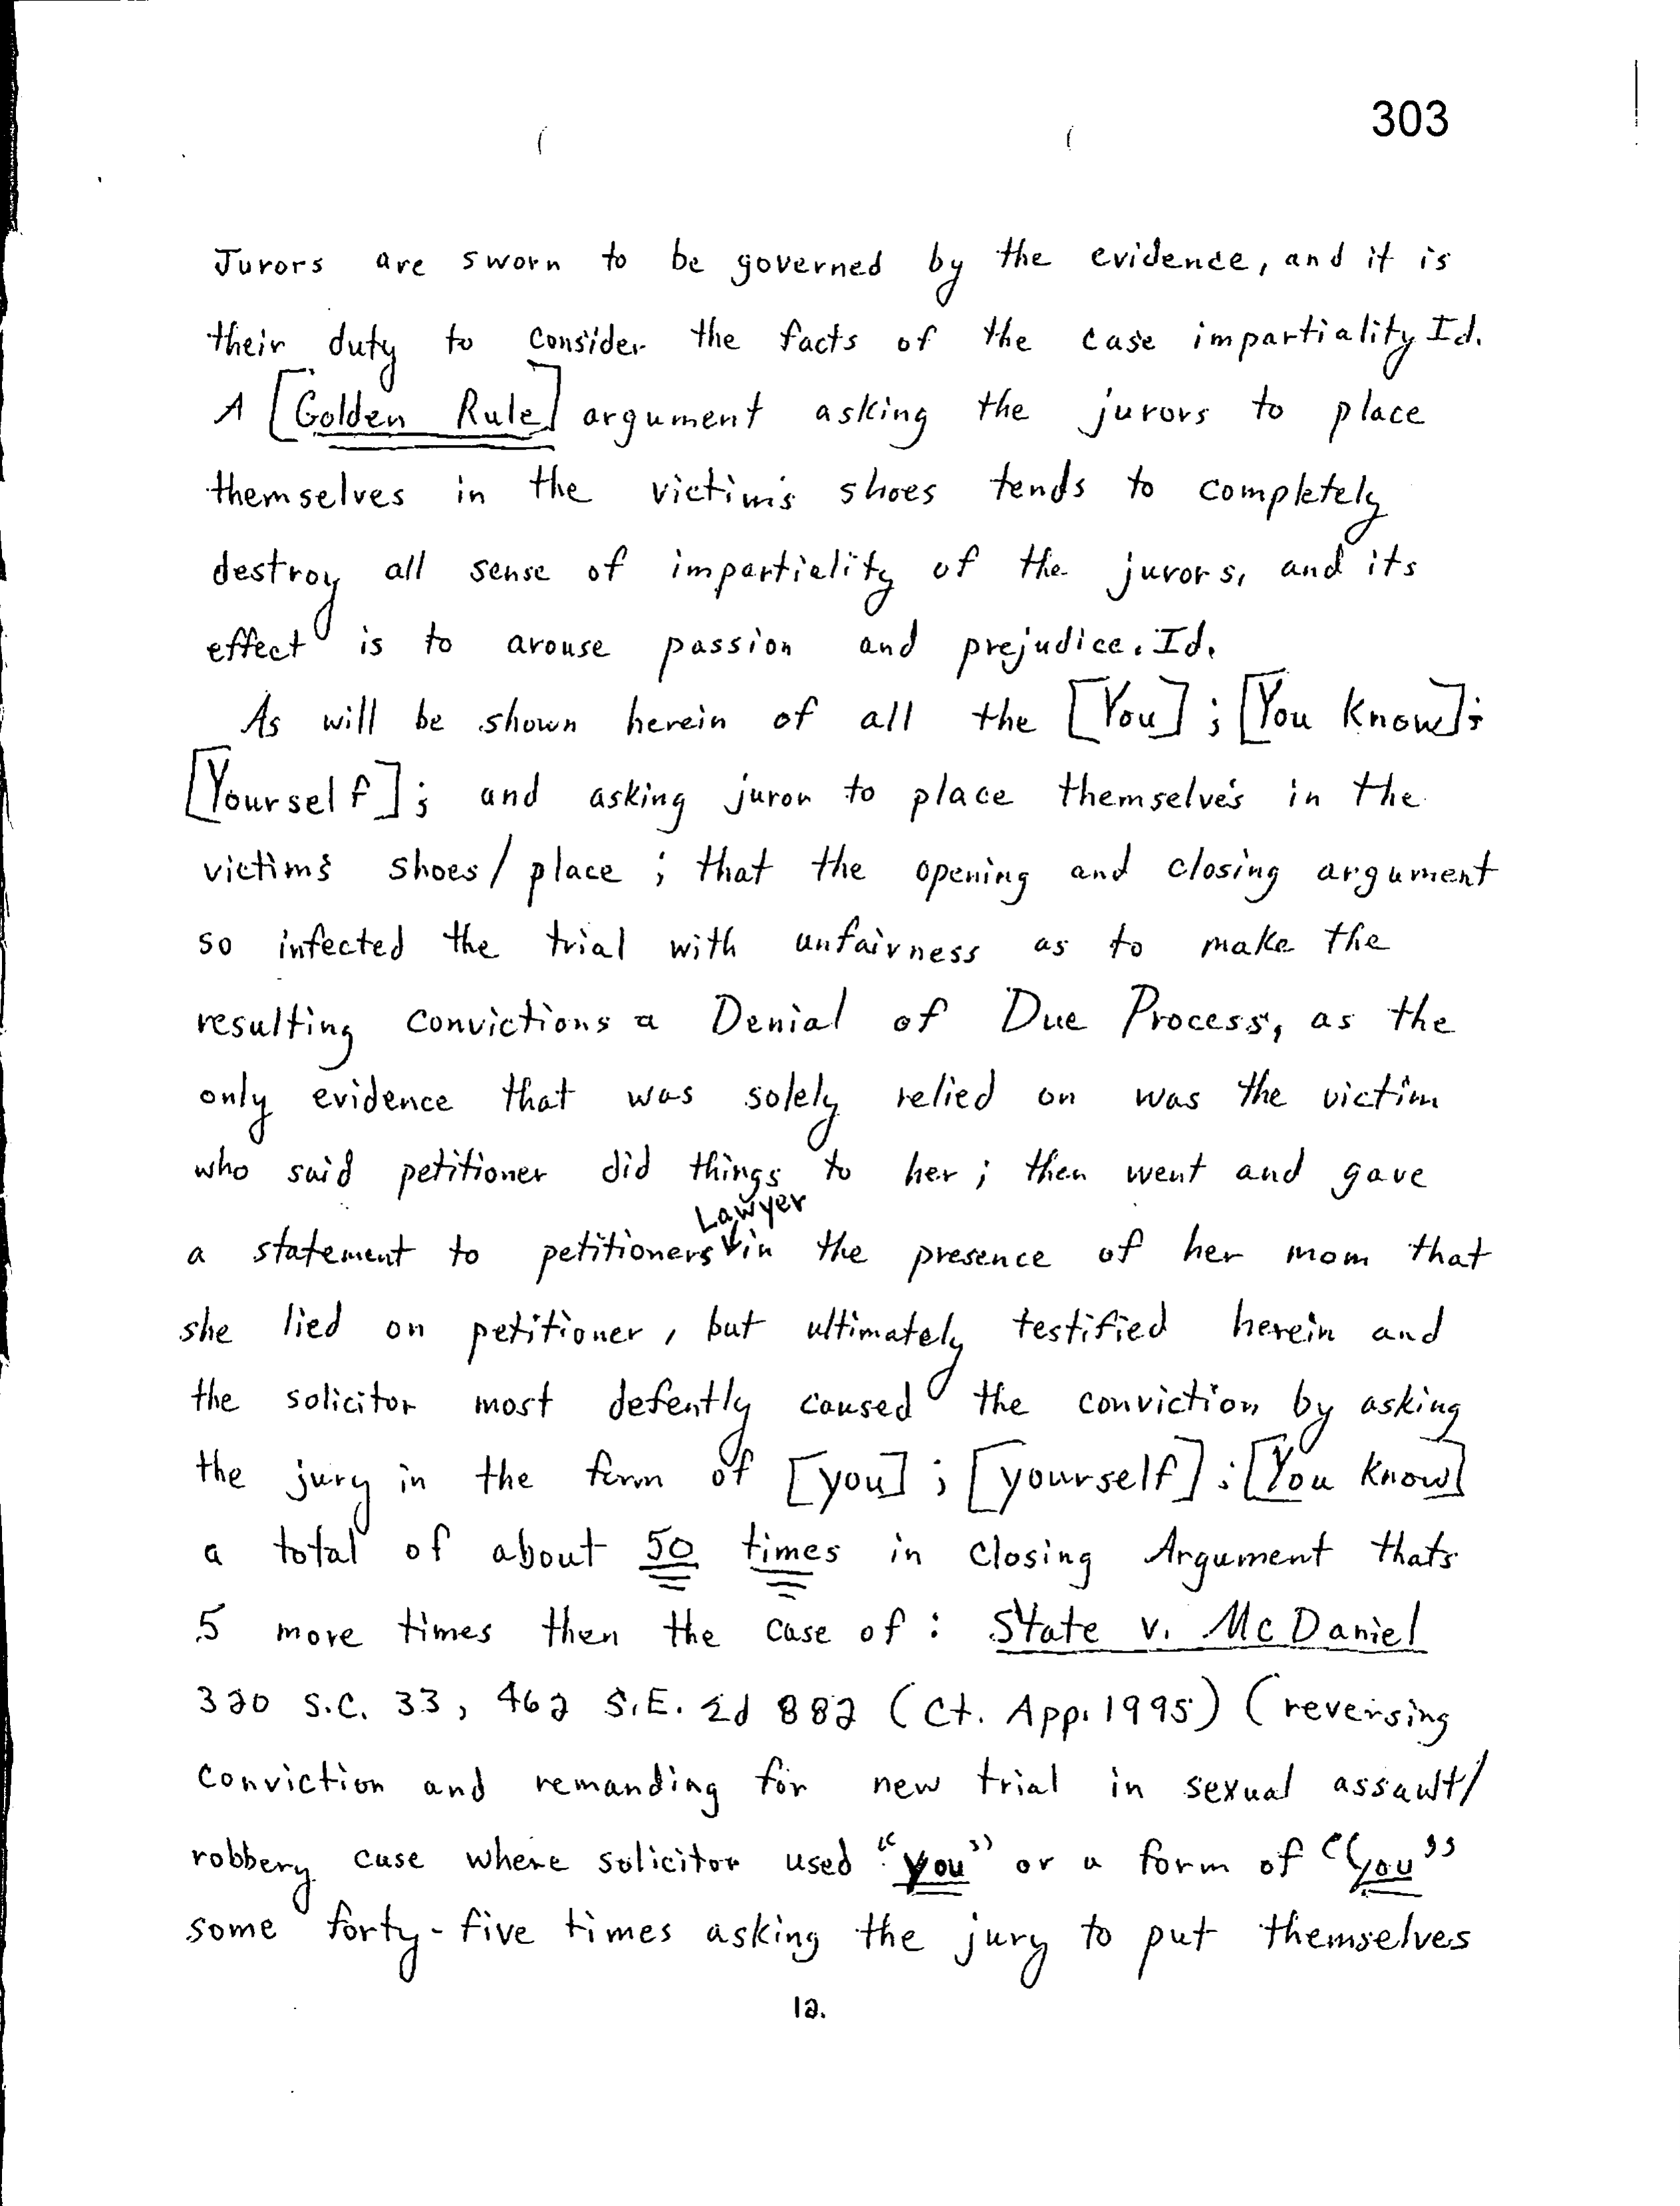 303
Jurors are sworn to be governed by the evidence, and it is
their duty to consider the facts of the case impartiality Id.
A [Golden Rule] argument asking the jurors to place
themselves in the victim's shoes tends to completely
destroy all sense of impartiality of the jurors, and its
effect is to arouse passion and prejudice. Id.
As will be shown herein of all the [You]; [You Know];
[Yourself]; and asking juror to place themselve's in the
victim's shoes/place; that the opening and closing argument
so infected the trial with unfairness as to make the
resulting convictions a Denial of Due Process, as the
only evidence that was solely relied on was the victim
who said petitioner did things to her; then went and gave
Lawyer
a statement to petitioners in the presence of her mom that
she lied on petitioner, but ultimately testified herein and
the solicitor most defently caused the conviction by asking
the jury in the form of [you]; [yourself]: [You Know]
a total of about 50 times in Closing Argument thats
5 more times then the case of: State v. McDaniel
320 S.C. 33, 462 S.E. 2d 882 (Ct. App. 1995) (reversing
conviction and remanding for new trial in sexual assault/
robbery case where solicitor used "you" or a form of "you"
some forty-five times asking the jury to put themselves
12.